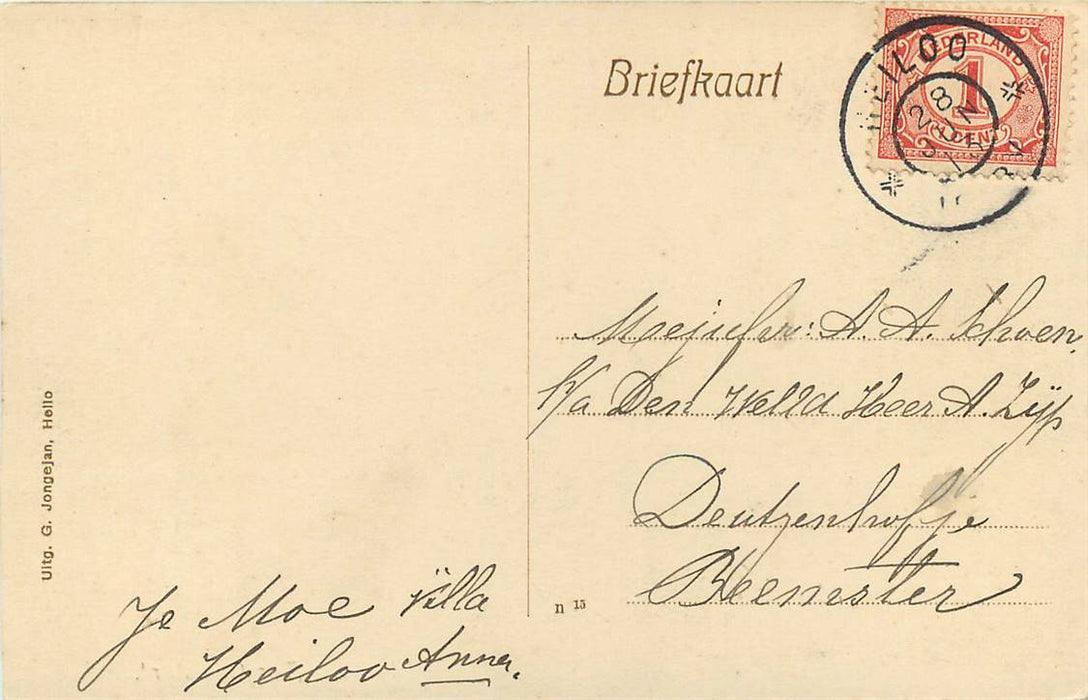 Briefkaart
NEDERLAND
1
CENT
HEILOO
Mejufvr: A. A. Schoen.
p/a Den Weled Heer A. Zijp
Deutzenhofje
Beemster
Je Moe Villa
Heiloo Anna.
Uitg. G. Jongejan, Heilo
n 15